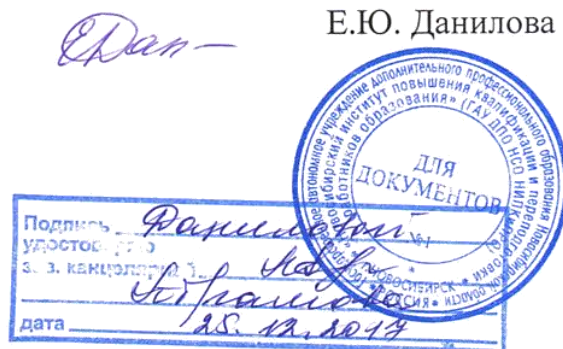 Е.Ю. Данилова
ЕДан
учреждение дополнительного профессионального образования Новосибирской области
Новосибирский институт повышения квалификации и переподготовки
работников образования» (ГАУ ДПО НСО НИПКиПРО)
ДЛЯ
ДОКУМЕНТОВ
№1
НОВОСИБИРСК
РОССИЯ
Подпись Даниловой
удостоверяю
з. з. канцелярией
Абрамова
дата 25.12.2017